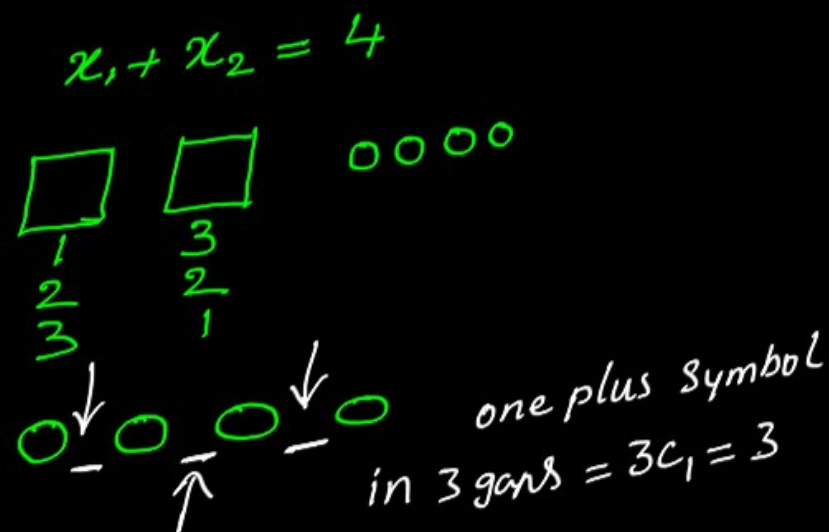 x₁ + x₂ = 4
1 3
2 2
3 1
one plus symbol
in 3 gaps = 3C₁ = 3